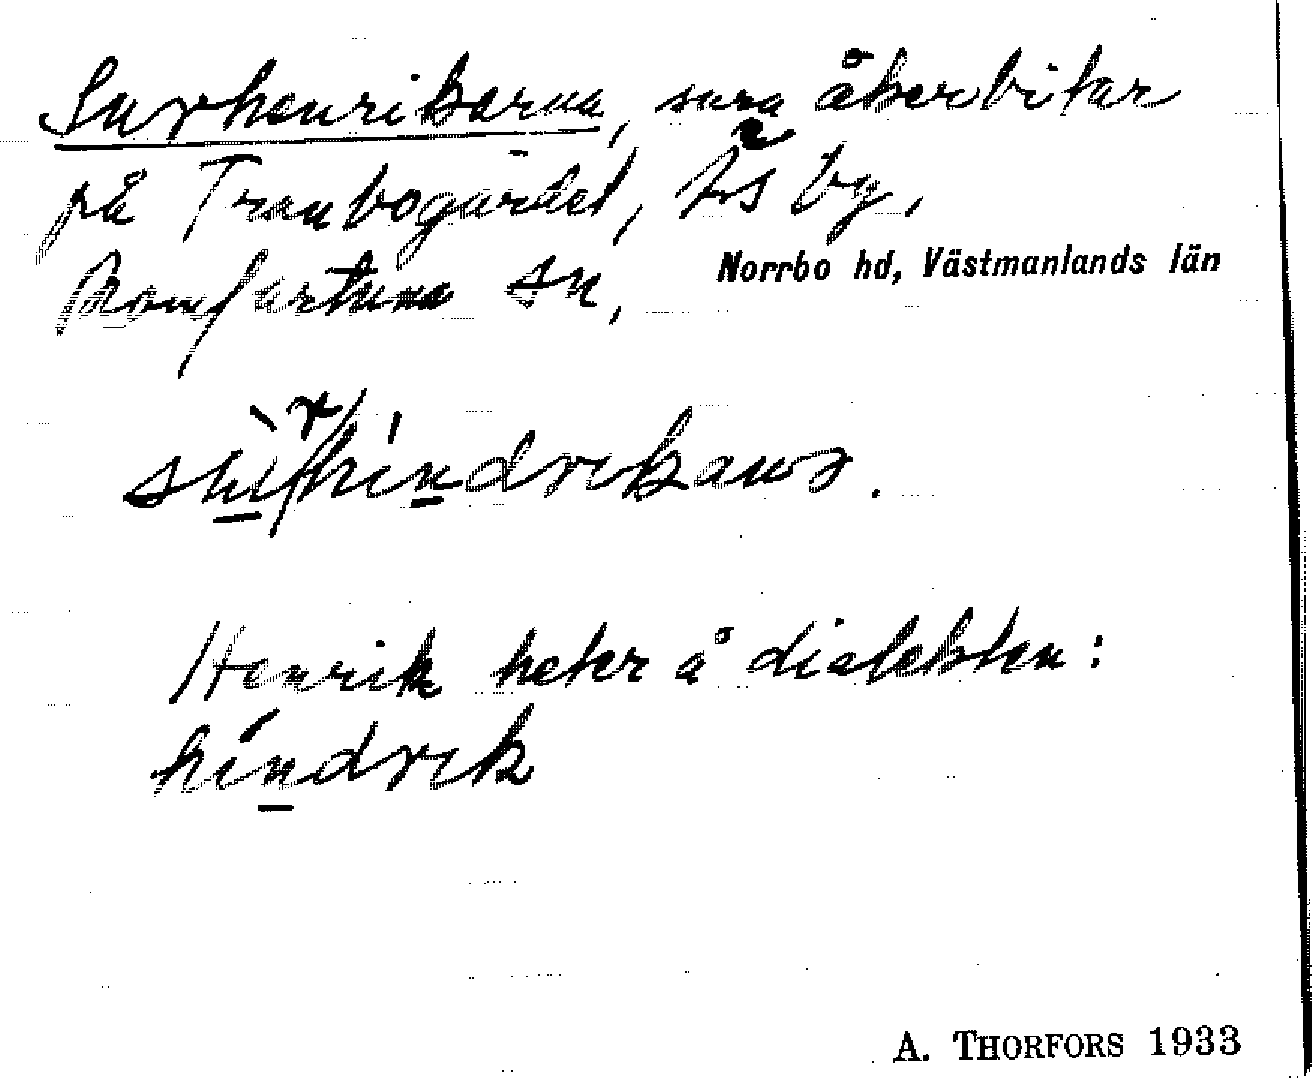 Surhenrikarna, sura åkerbitar
på Tranbogärdet, Ås by,
Romfartuna sn, Norrbo hd, Västmanlands län
hindrikans.
Henrik heter å dialekten:
hindrik
A. THORFORS 1933